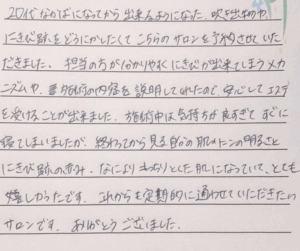 20代なかばになってから出来るようになった、吹き出物や、
にきび跡をどうにかしたくてこちらのサロンを予約させていた
だきました。担当の方が分かりやすくにきびが出来てしまうメカ
ニズムや、施術の内容を説明してくれたので安心してエステ
を受けることが出来ました。施術中は気持ちが良すぎてすぐに
寝てしまいましたが、終わってから見る自分の肌のトーンの明るさと
にきび跡の赤み、なによりもっちりとした肌になっていて、とても
嬉しかったです。これからも定期的に通わせていただきたい
サロンです。ありがとうございました。